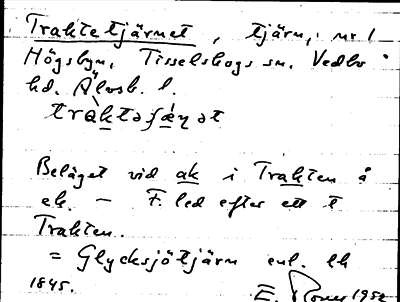 Traktetjärnet, tjärn, nr 1
Högsbyn, Tisselskogs sn. Vedbo
hd. Älvsb. l.
tràktəʃæ̀ɳət
Beläget vid ak i Trakten å
ek. – F. led efter ett t
Trakten.
= Glycksjötjärn enl. lk
1845.
E. 1952